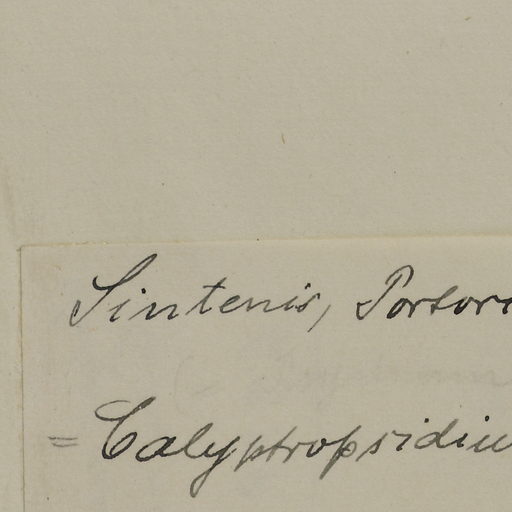 Sintenis, Portori
= Calyptropsidiu